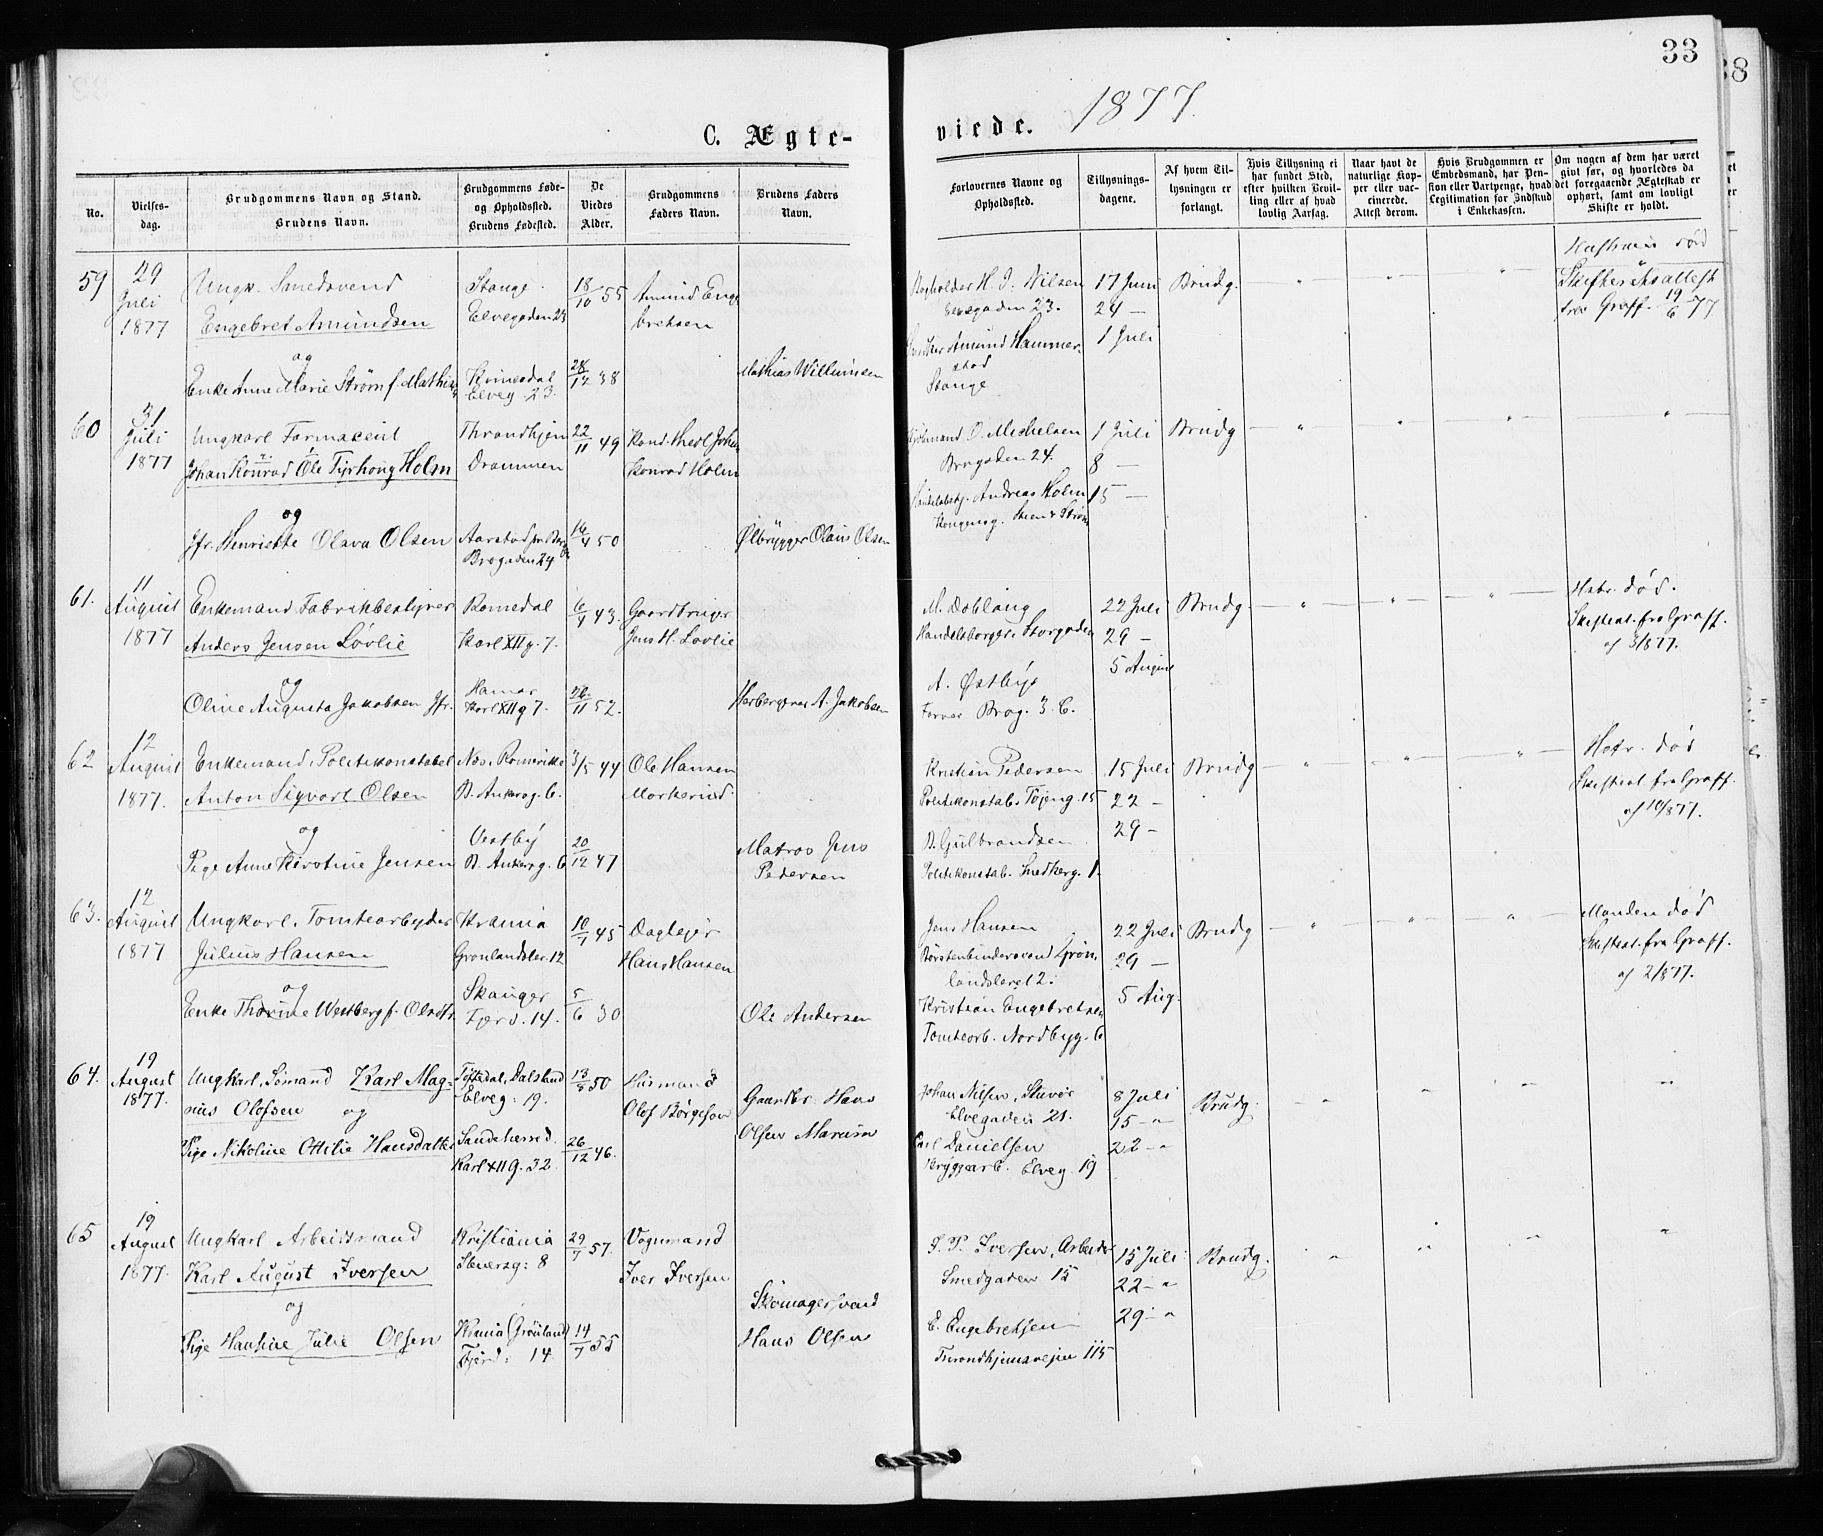 33
1877.
C. Ægte-
viede.
No.
Vielses-
dag.
Brudgommens Navn og Stand.
Brudens Navn.
Brudgommens Føde-
og Opholdssted.
Brudens Fødested.
De
Viedes
Alder.
Brudgommens
Faders Navn.
Brudens Faders
Navn.
Forlovernes Navne og
Opholdssted.
Tillysnings-
dagene.
Af hvem Til-
lysningen er
forlangt.
Hvis Tillysning ei
har fundet Sted,
efter hvilken Bevil-
ling eller af hvad
lovlig Aarsag.
Naar havt de
naturlige Kop-
per eller vac-
cinerede.
Attest derom.
Hvis Brudgommen er
Embedsmand, har Pen-
sion eller Vartpenge, hvad
Legitimation for Indskud
i Enkekassen.
Om nogen af dem har været
gift før, og hvorledes da
det foregaaende Ægteskab er
ophørt, samt om lovligt
Skifte er holdt.
59
29
Juli
1877
Ungk. Smedsvend
Engebret Amundsen
og
Enke Anne Marie Strøm f. Mathis
Stange.
Elvegaden 23
Romedal
Elveg. 23.
18/10 55
28/12 38
Amund Enge
bretsen
Mathias Willumsen
H. J. Nilsen
Elvegaden 23.
Amund Hammer-
stad
Stange
17 Juni
24 —
1 Juli
Brudg.
død
Skifteretsattest
fra Graff. 19/6 77
60
31
Juli
1877
Ungkarl Farmaceut
Johan Konrad Ole Tyrhong Holm
og
Jfr. Henriette Olava Olsen
Throndhjem
Drammen
Aarstad pr Ber
Brogaden 24
22/11 49
16/4 50
Kand. theol Johan
Konrad Holm
Ølbrygger Olaus Olsen
O. Michelsen
Brogaden 24.
Andreas Holm
Kongensg.
1 Juli
8 —
15 —
Brudg
61.
11
August
1877
Enkemand, Fabrikbestyrer
Anders Jensen Løvlie
og
Oline Augusta Jakobsen Jfr.
Romedal
Karl XII g. 7.
Hamar
Karl XII g 7.
6/4 43.
26/11 52.
Gaardbruger
Jens H. Løvlie
Herbergerer A. Jakobsen
M. Dobloug
Handelsborger. Storgaden
A. Østbye
Farver Brog. 3. C.
22 Juli
29 —
5 August
Brudg.
Hstr. død.
Skifteat. fra Graff.
af 3/8 77.
62
12
August
1877.
Enkemand, Politikonstabel
Anton Sigvart Olsen
og
Pige Anne Kirstine Jensen
Nes, Romerike
B. Ankersg. 6.
Vestby
B. Ankersg. 6
3/5 44
20/12 47
Ole Hansen
Morkerud.
Matros Jens
Pedersen
Kristian Pedersen
Politikonstab. Tøjeng. 15
B. Gulbrandsen
Politikonstab. Smedberg. 1.
15 Juli
22 —
29 —
Brudg
Hstr. død
Skifteat. fra Graff.
af 10/8 77.
63.
12
August
1877
Ungkarl, Tomtearbejder
Julius Hansen
og
Enke Thorine Westberg f. Olsdtr.
Krania
Grønlandsler. 12
Skauger
Fjerd. 14.
10/7 45
5/6 30
Daglejer
Hans Hansen
Ole Andersen
Jens Hansen
Børstenbindersvend Grøn-
landsleret 2.
Kristian Engebretsen
Tomtearb. Nordbyg. 6
22 Juli
29 —
5 Aug.
Brudg
Manden død
Skifteat. fra Graff.
af 2/8 77.
64.
19
August
1877.
Ungkarl, Sømand Karl Mag-
nus Olofsen og
Pige Nikoline Ottilie Hansdatter
Dalsland
Elveg: 19.
Sandeherred.
Karl XII g. 32.
13/8 50
26/12 46.
Husmand
Olof Børgeson
Gaardbr. Hans
Olsen Marum
Johan Nilsen, Stuvør
Elvegaden 21.
Carl Danielsen
Bryggearb. Elveg. 19
8 Juli
15 — "
22 — "
Brudg.
65
19
August
1877.
Ungkarl Arbeidsmand
Karl August Iversen
og
Pige Hansine Julie Olsen
Kristiania
Stenersg: 8
Krania (Grønland)
Fjerd: 14.
29/7 57.
14/7 55
Vognmand
Iver Iversen
Skomagersvend
Hans Olsen
J. P. Iversen, Arbeider
Smedgaden 15
E. Engebretsen
Trondhjemsvejen 115
15 Juli
22 — "
29 — "
Brudg.